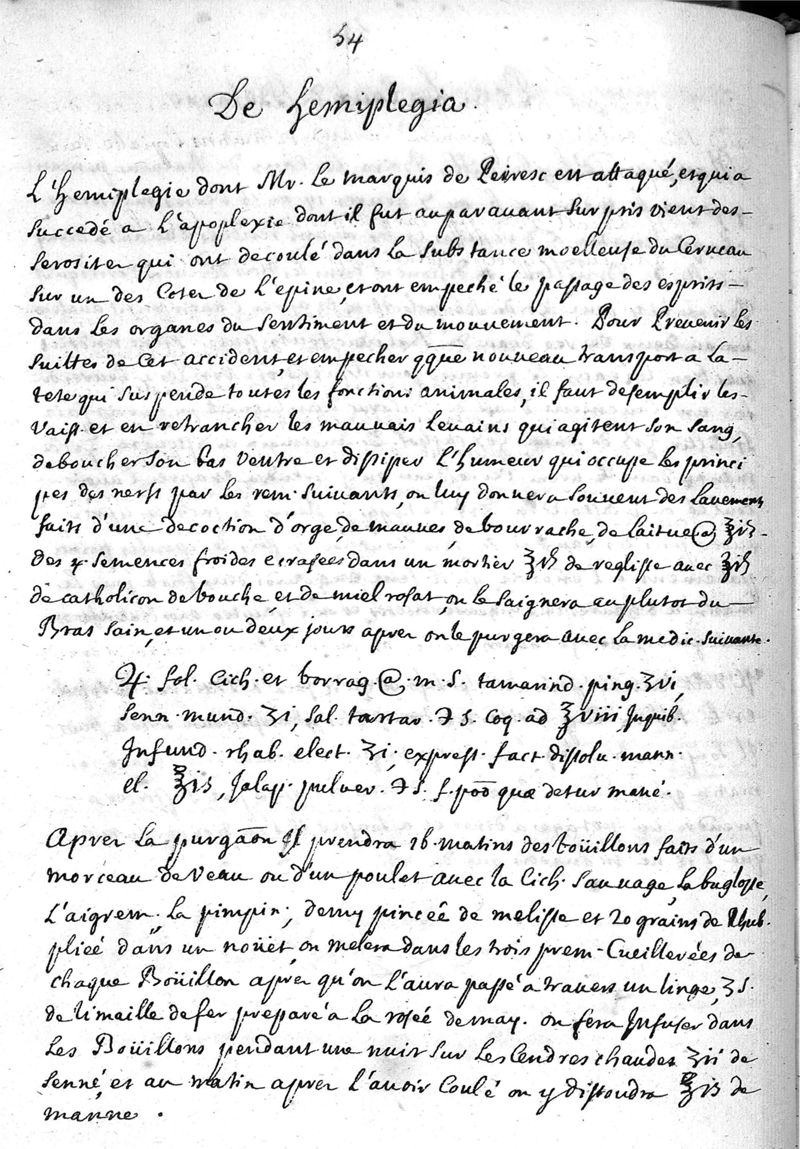 54
De hemiplegia.
L'hemiplegie dont Mr. Le marquis de Peiresc est attaqué, et qui a
succedé a L'apoplexie dont il fut auparauant surpris vient des
serositez qui ont decoulé dans La substance moelleuse du Cerueau
sur un des Cotez de L'epine, et ont empeché le passage des esprits
dans Les organes du sentiment et du mouuement. Pour Preuenir les
suittes de Cet accident, et empecher qque nouueau transport a La
tete qui suspende toutes les fonctions animales, il faut desemplir les
Vaiss. et en retrancher les mauuais Leuains qui agitent son sang,
deboucher son bas Ventre et dissiper L'humeur qui occupe les princi
pes des nerfs par les rem. suiuants, on luy donnera souuent des Lauements
faits d'une decoction d'orge, de mauues, de bourrache, de Laitue @ ʒiß
des 4 semences froides ecrasées dans un mortier ʒiß de reglisse auec ʒiß
de catholicon de bouche et de miel rosat, on le saignera au plutot du
Bras sain, et un ou deux jours aprez on le purgera auec La medic. suiuante.
♃. fol. Cich. et borrag. @. m. s. tamarind. ping. ʒvi,
senn. mund. ʒi, sal. tartar. ℈ s. coq. ad ℥viii Jnquib.
Jnfund. rhab. elect. ʒi, express. fact. dissolu. mann.
el. ℥iß, Jalap. puluer. ℈ s. f. poõ quæ detur mané.
Aprez La purgaõn Jl prendra 16. matins des boüillons faits d'un
morceau de Veau ou d'un poulet auec la Cich. sauuage, La buglosse,
L'aigrem. La pimpin; demy pinceé de melisse et 20 grains de Rhub.
plieé dans un noüet, on melera dans les trois prem. Cueillerées de
chaque Boüillon aprez qu'on L'aura passé a trauers un linge, ʒ s.
de limaille de fer preparé a La rosée de may. on fera Jnfuser dans
Les Boüillons pendant une nuit sur Les Cendres chaudes ʒii de
senné, et au matin aprez L'auoir Coulé on y dissoudra ℥iß de
manne.